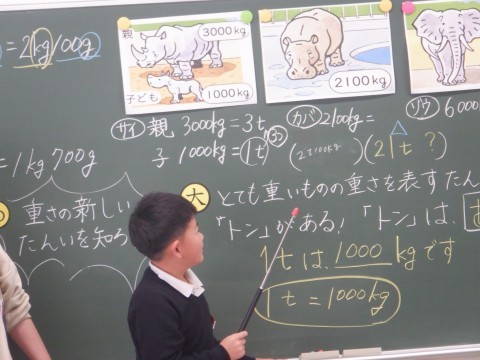 = 2kg100g
親
3000kg
子ども
1000kg
2100kg
サイ 親 3000kg=3t
子 1000kg=1t
カバ 2100kg=
(2t100kg)
(21t?)
ゾウ 6000
=1kg700g
重さの新しい
たんいを知ろ
大 とても重いものの重さを表すたん
「トン」がある！「トン」は、
1tは、1000kgです
1t=1000kg